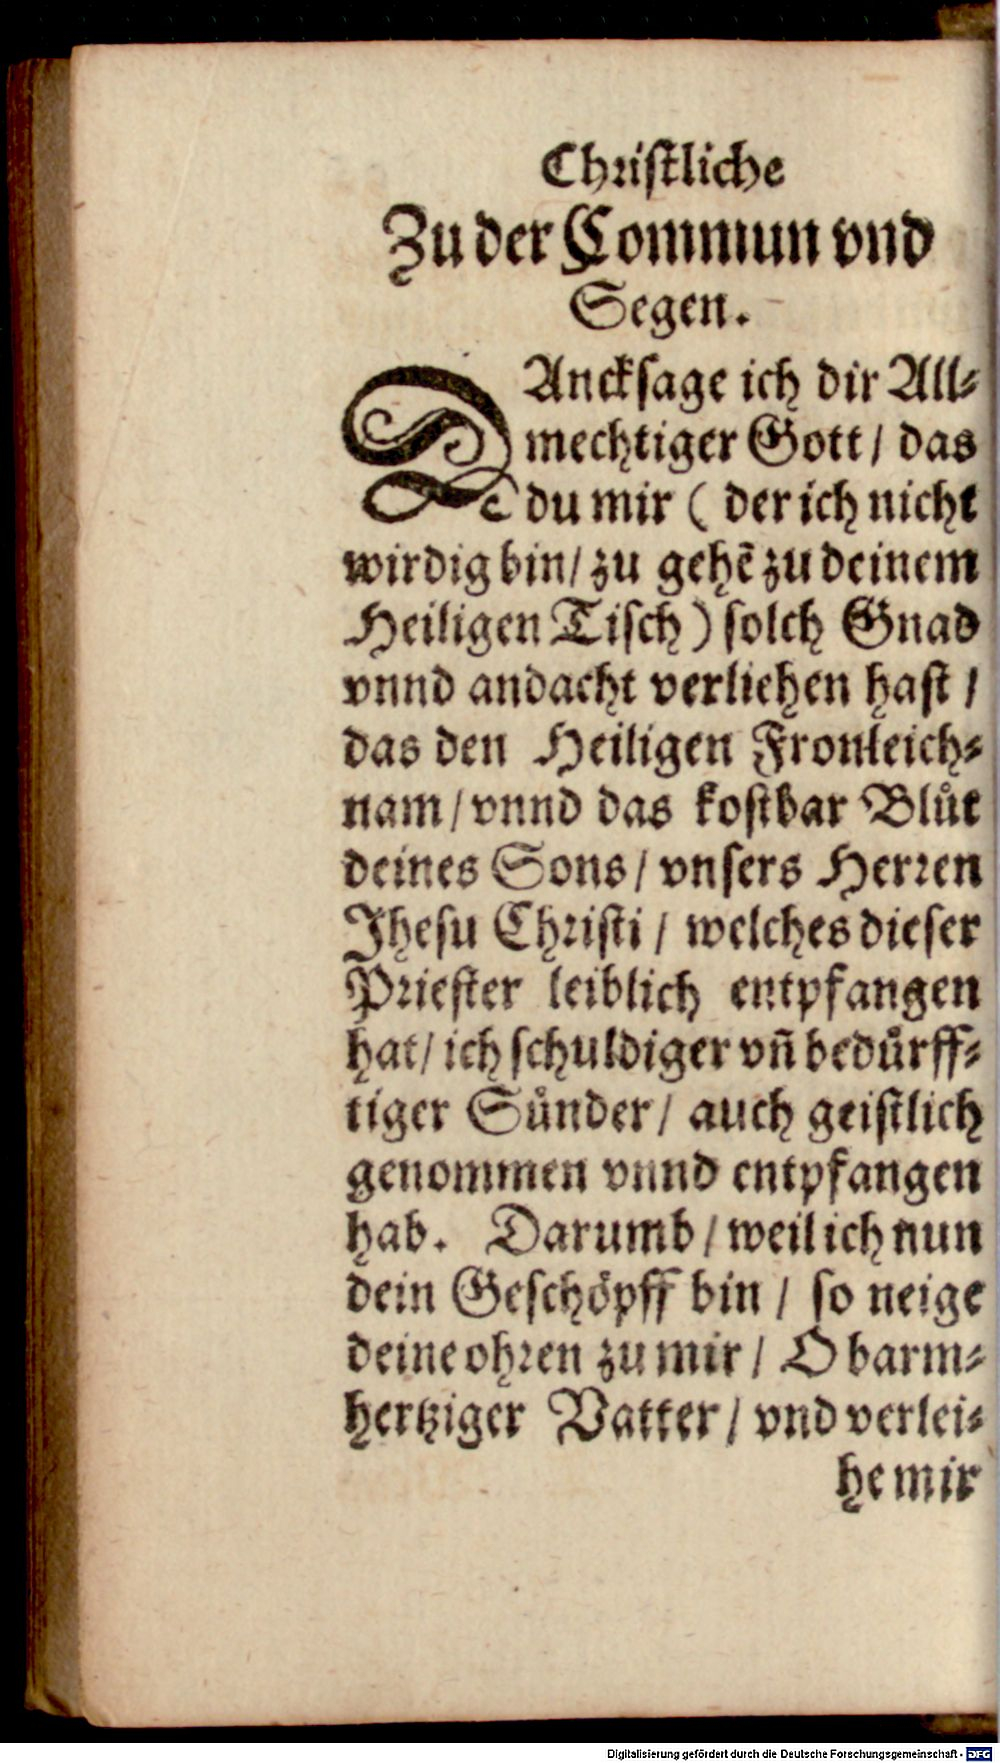 Christliche
Zu der Commun vnd
Segen.
DAncksage ich dir All⸗
mechtiger Gott / das
du mir ( der ich nicht
wirdig bin / zu gehẽ zu deinem
Heiligen Tisch ) solch Gnad
vnnd andacht verliehen hast /
das den Heiligen Fronleich⸗
nam / vnnd das kostbar Bluͤt
deines Sons / vnsers Herren
Jhesu Christi / welches dieser
Priester leiblich entpfangen
hat / ich schuldiger vñ beduͤrff⸗
tiger Suͤnder / auch geistlich
genommen vnnd entpfangen
hab. Darumb / weil ich nun
dein Geschöpff bin / so neige
deine ohren zu mir / O barm⸗
hertziger Vatter / vnd verlei⸗
he mir
Digitalisierung gefördert durch die Deutsche Forschungsgemeinschaft - DFG